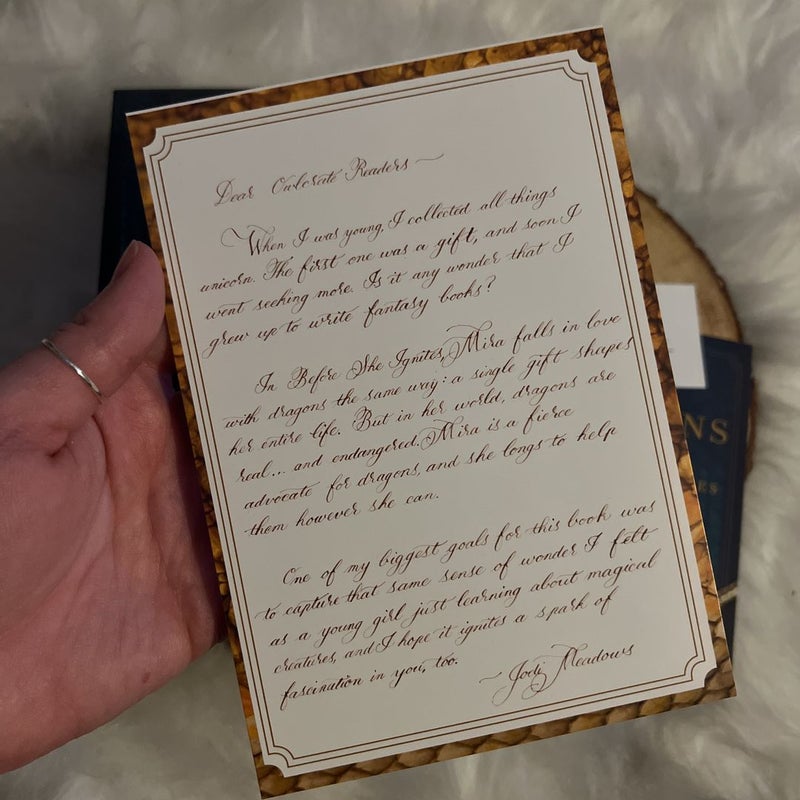 Dear Owlcrate Readers ~
When I was young, I collected all things
unicorn. The first one was a gift, and soon I
went seeking more. Is it any wonder that I
grew up to write fantasy books?
In Before She Ignites, Mira falls in love
with dragons the same way: a single gift shapes
her entire life. But in her world, dragons are
real... and endangered. Mira is a fierce
advocate for dragons, and she longs to help
them however she can.
One of my biggest goals for this book was
to capture that same sense of wonder I felt
as a young girl just learning about magical
creatures, and I hope it ignites a spark of
fascination in you, too.
~ Jodi Meadows
NS